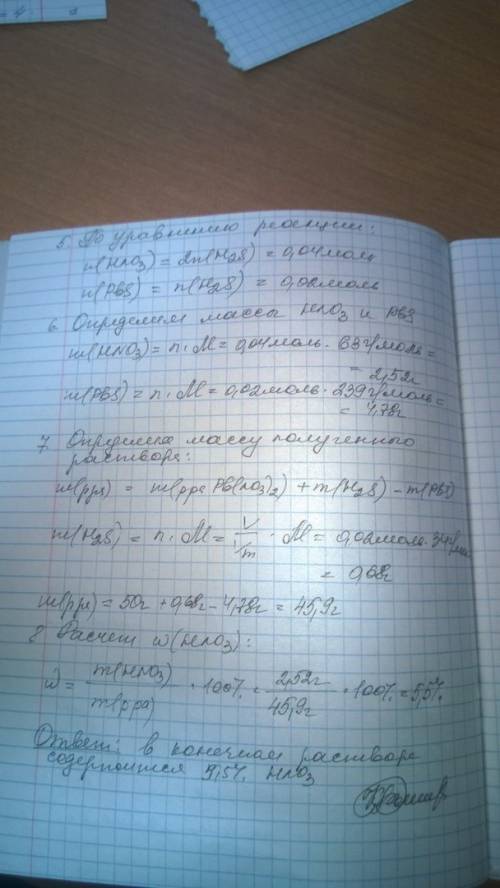 5. По уравнению реакции:
n(HNO₃) = 2n(H₂S) = 0,04моль
n(PbS) = n(H₂S) = 0,02моль
6. Определим массы HNO₃ и PbS
m(HNO₃) = n · M = 0,04моль · 63г/моль =
= 2,52г
m(PbS) = n · M = 0,02моль · 239г/моль =
= 4,78г
7. Определим массу полученного
раствора:
m(рра) = m(рра Pb(NO₃)₂) + m(H₂S) - m(PbS)
m(H₂S) = n · M = V/Vm · M = 0,02моль · 34г/моль
= 0,68г
m(рра) = 50г + 0,68г - 4,78г = 45,9г
8 Расчет ω(HNO₃):
ω = m(HNO₃)/m(рра) · 100% = 2,52г/45,9г · 100% = 5,5%
Ответ: в конечном растворе
содержится 5,5% HNO₃